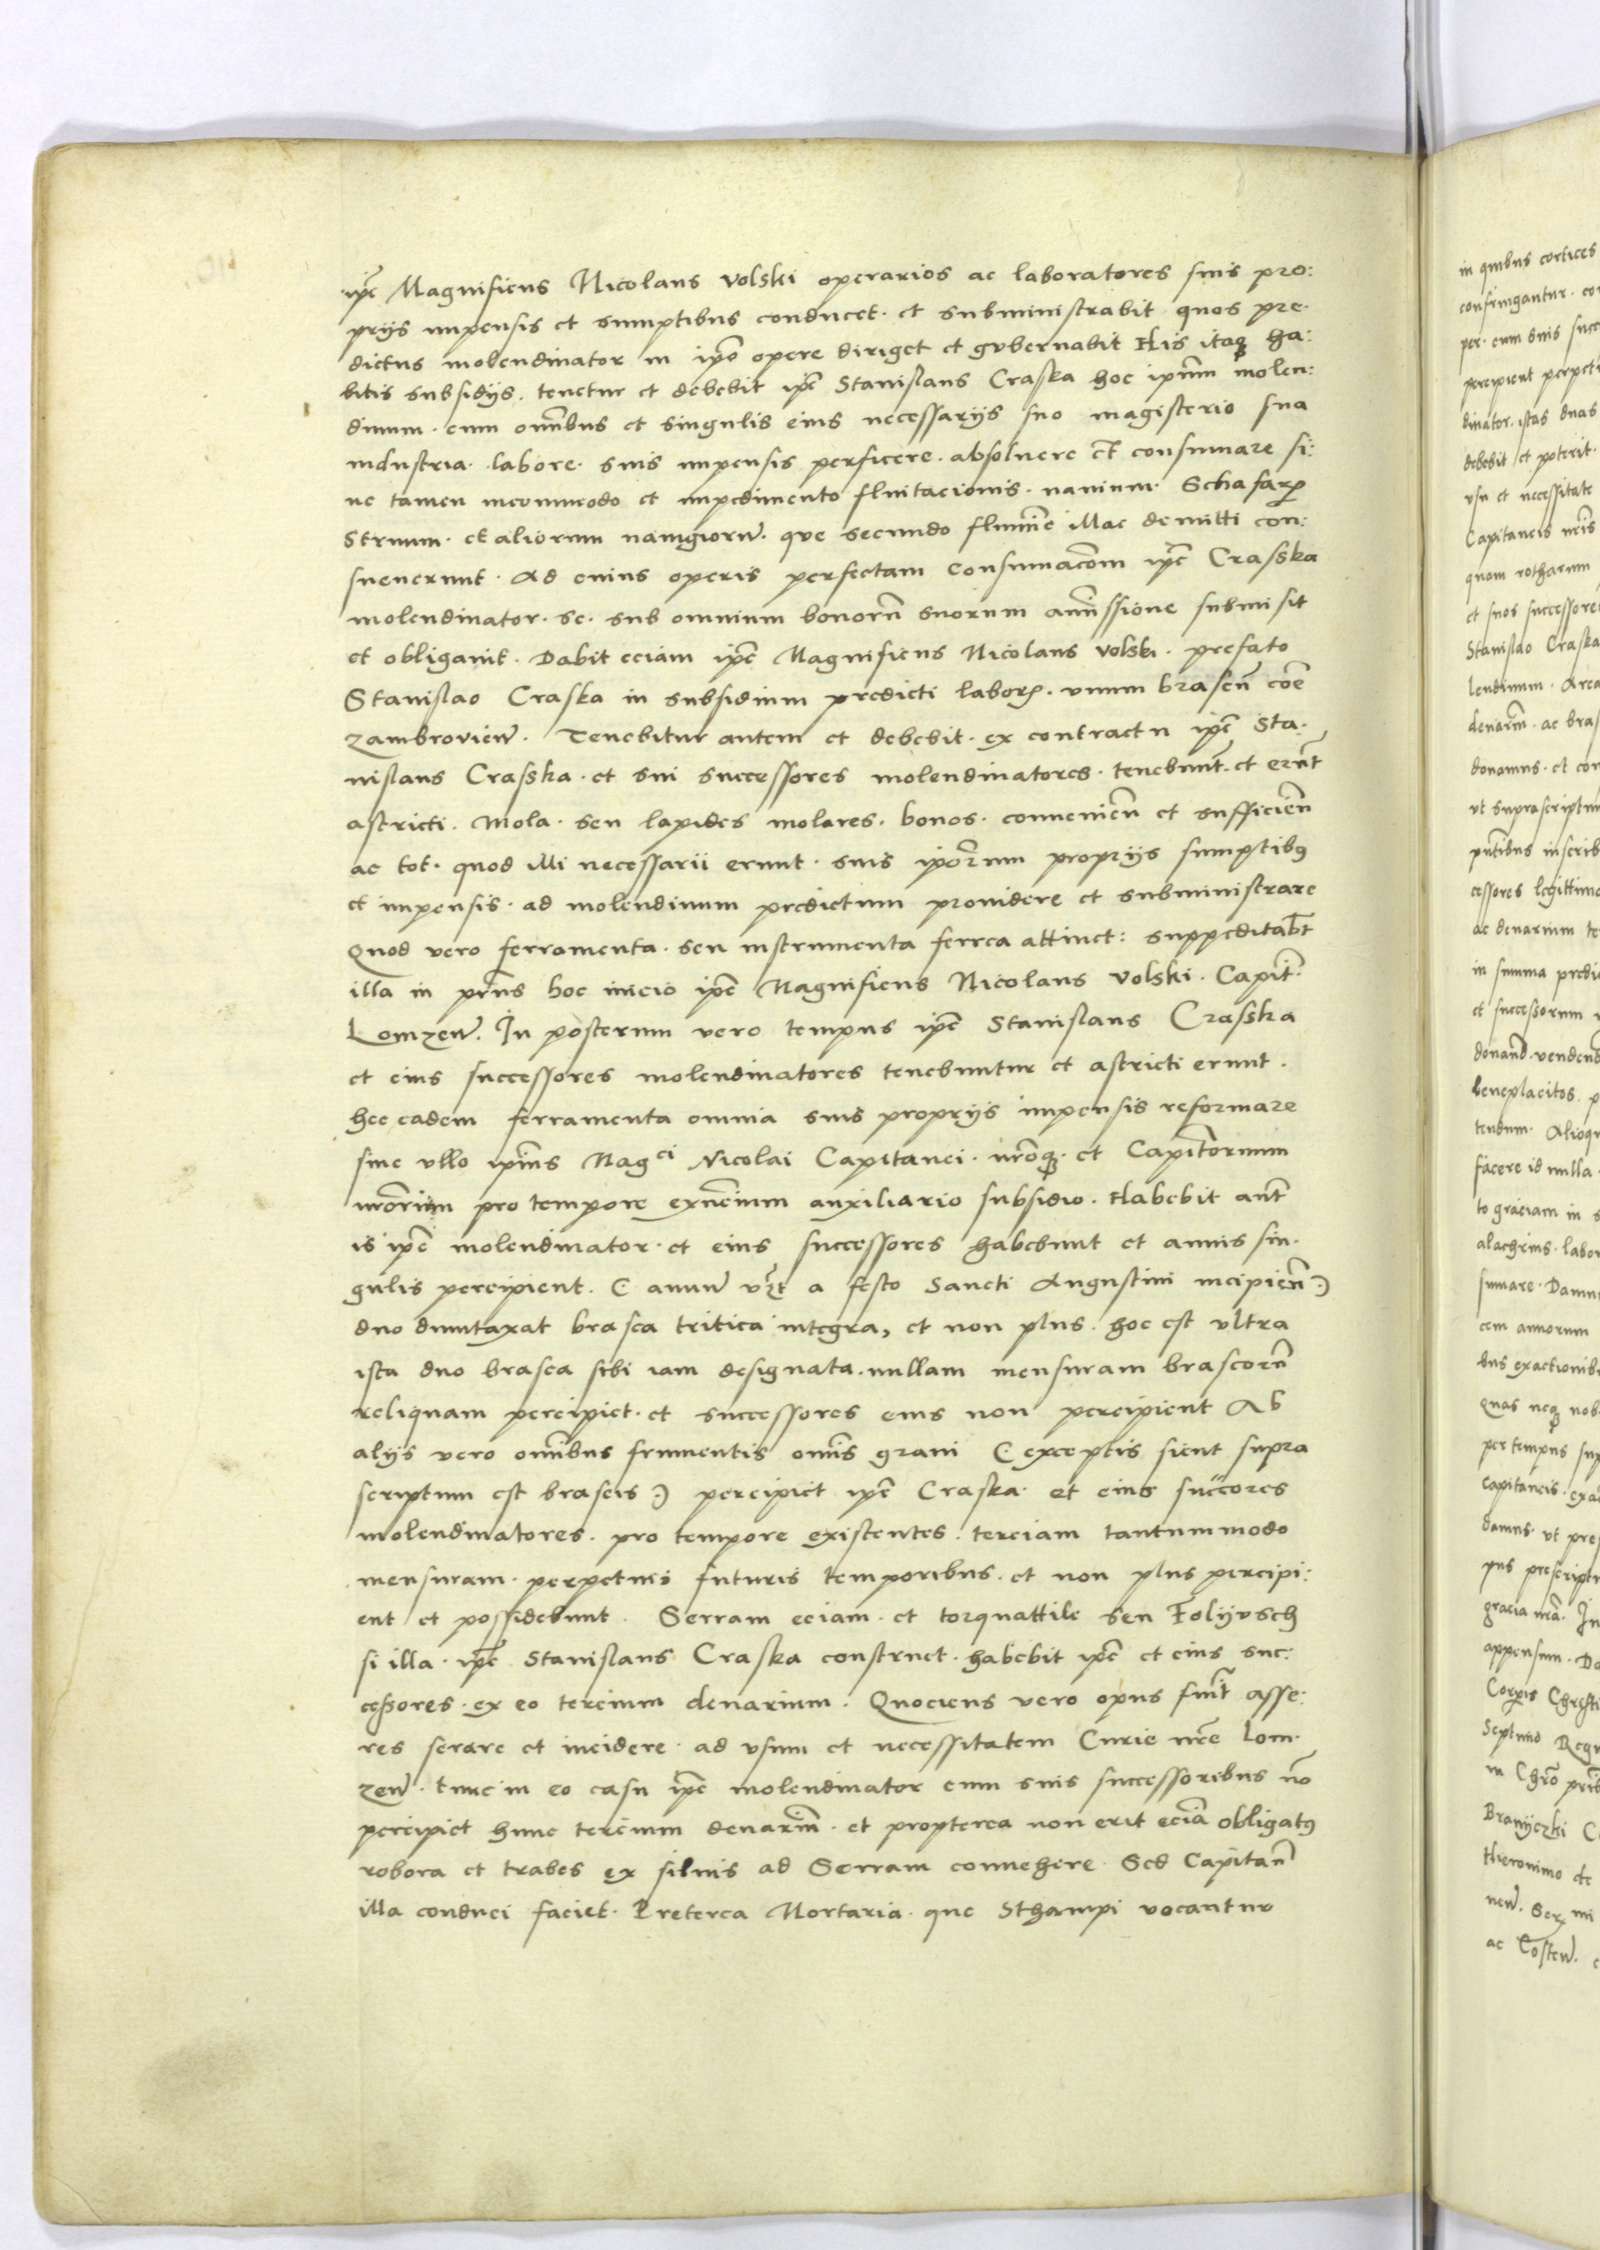 ipe Magnificus Nicolaus Volski operarios ac laboratores suis pro:
prijs impensis et sumptibus conducet. et subministrabit quos pre.
dictus molendinator in ipo opere diriget et gvbernabit His itaq ha:
bitis subsidijs. tenetur et debebit ipe Stanislaus Craska hoc ipsum molen:
dinum. cum omnibus et singulis eius necessarijs suo magisterio sua
industria. labore. suis impensis perficere. absoluere et consumare si:
ne tamen incommodo et impedimento fluitacionis. nauium. Schafarp
Struum. et aliorum nauigiorum. que secundo flumine illac demitti con:
sueuerunt. Ad cuius operis perfectam consumacom ipe Crasska
molendinator. se. sub omnium bonorum suorum amissione submisit
et obligauit. Dabit eciam ipe Magnificus Nicolaus Volski. prefato
Stanislao Craska in subsidium predicti labor. vnum brasen coe
zambrovien. Tenebitur autem et debebit. ex contractu ipe Sta.
nislaus Crasska. et sui successores molendinatores. tenebunt. et erunt
astricti. Mola. seu lapides molares. bonos. conuenien et sufficien
ac tot. quod illi necessarii erunt. suis iporum proprijs sumptibus
et impensis. ad molendinum predictum prouidere et subministrare
Quod vero ferramenta. seu instrumenta ferrea attinet: suppeditabt
illa in prns hoc inicio ipe Magnificus Nicolaus Volski. Capit.
Lomzen. In posterum vero tempus ipe Stanislaus Crasska
et eius successores molendinatores tenebuntur et astricti erunt.
hec eadem ferramenta omnia suis proprijs impensis reformare
sine vllo ipius Mag ci Nicolai Capitanei. nroq. et Capitorum
nrorum pro tempore exncium auxiliario subsidio. Habebit aut
is ipe molendinator. et eius successores habebunt et annis sin.
gulis percipient. C annu vzt a festo Sancti Augustini incipien :)
duo dumtaxat brasca tritica integra, et non plus. hoc est vltra
ista duo brasca sibi iam designata. nullam mensuram brascorum
reliquam percipiet. et successores eius non percipient Ab
alijs vero omnibus frumentis omnis grani C exceptis sicut supra
scriptum est brascis :) percipiet ipe Craska. et eius succores
molendinatores. pro tempore existentes. terciam tantummodo
mensuram. perpetuis futuris temporibus. et non plus percipi:
ent et possidebunt. Serram eciam. et torquattile seu Folyvsch
si illa. ipe Stanislaus Craska construet. habebit ipe et eius suc:
cessores. ex eo tercium denarium. Quociens vero opus fuit asse:
res serare et incidere. ad vsum et necessitatem Curie nre Lom.
zen. tunc in eo casu ipe molendinator cum suis successoribus no
percipiet hunc tercium denarium. et propterea non erit eciam obligatus
robora et trabes ex siluis ad Serram conuehere. Sed Capitan
illa conduci faciet. Preterea Mortaria. que Sthampi vocantur
in quibus cortices
confringantur.
per. eum duis
percipient
dinator. istas duas
debebit et poterit.
vsu et necessitate
Capitaneis nris
quam rotharum
et suos successores
Stanislao Craska
lendinum. Area
denarium. ac
donamus. et
vt suprascriptum
pntibus
cessores legittimo
ac denarium
in summa
et successorum
donand. vendend
beneplacitos.
tendum. Alioqu
facere id nulla.
to graciam in
alacrius.
sumare. Damu
cem annorum
bus
quas neq nob
per tempus
capitaneis.
damus. vt
pus
gracia nra. In
appensum.
Corporis Christi
Septimo
in Chro
Branyczki
Hieronimo de
nen.
ac Costen.